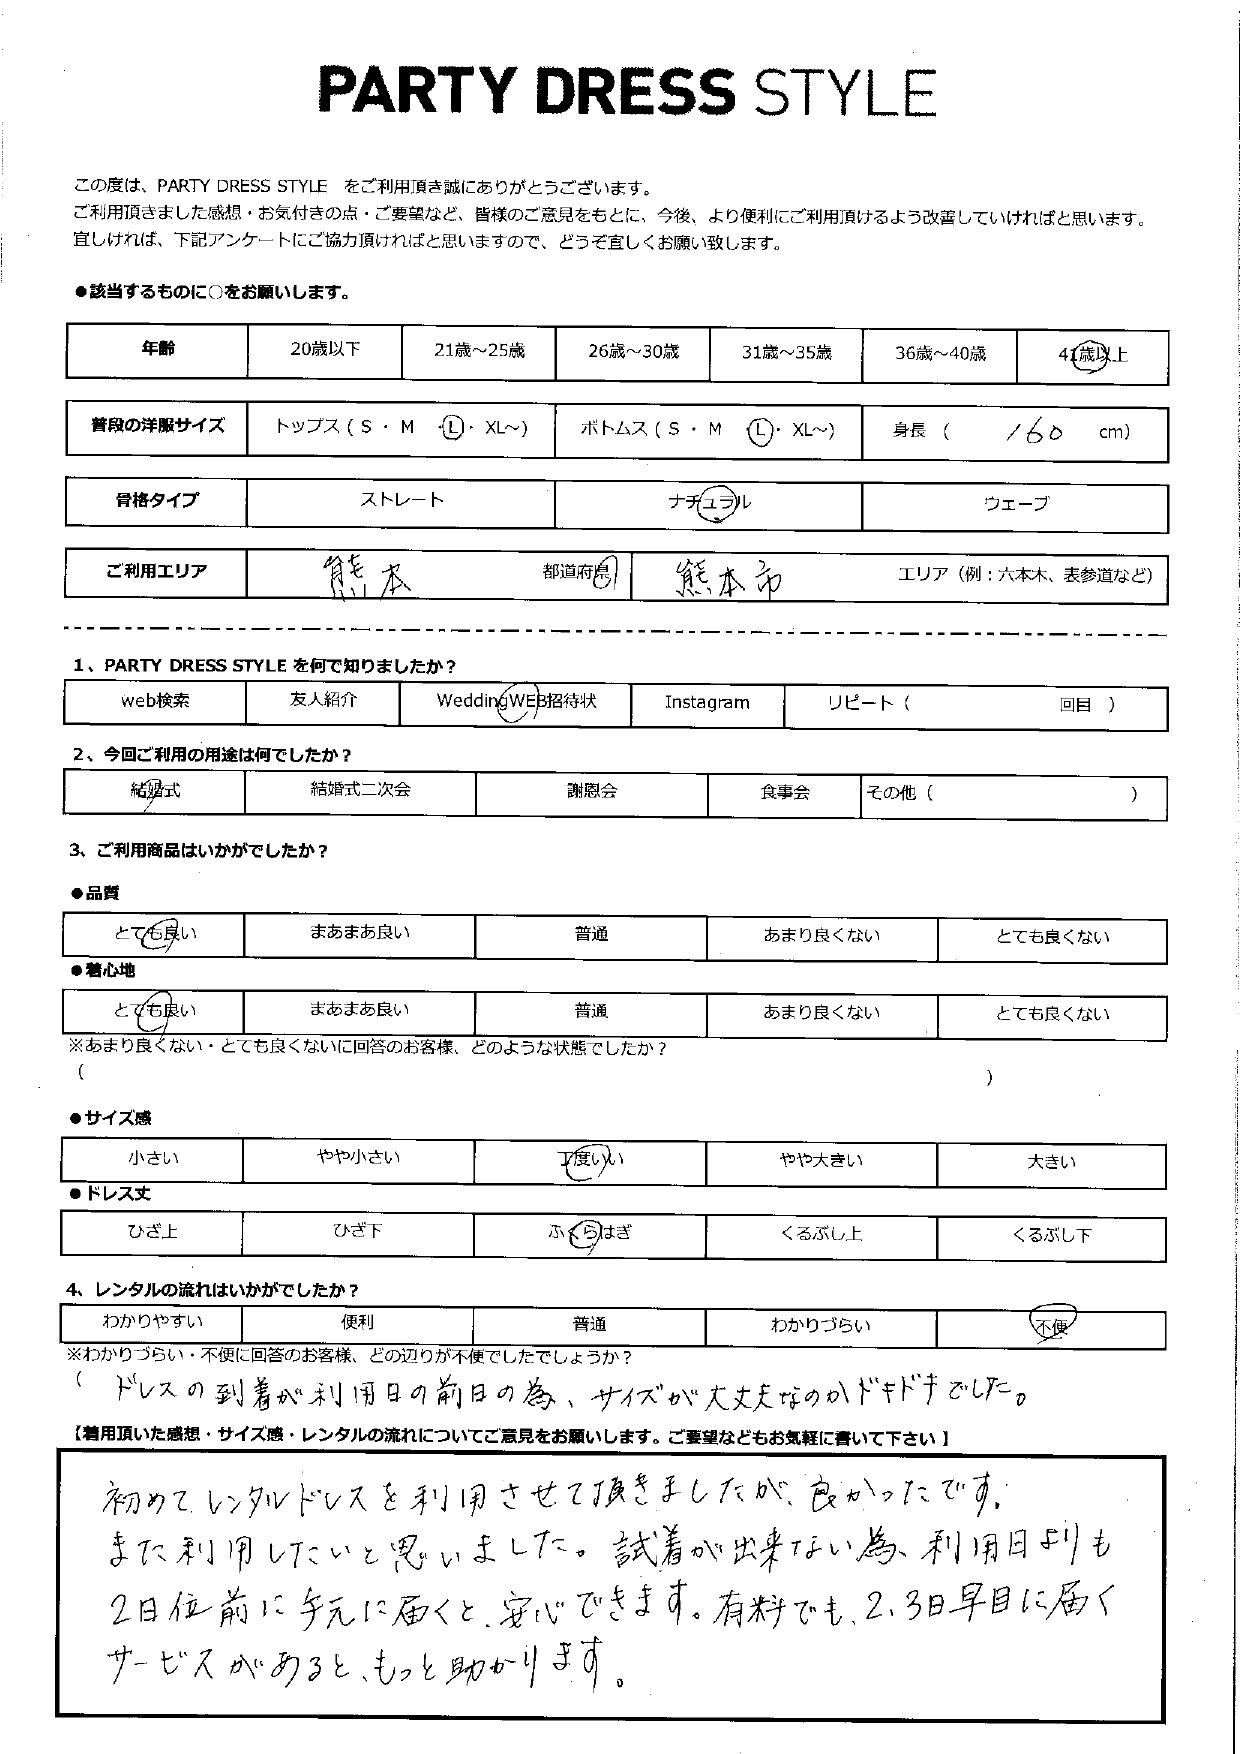 PARTY DRESS STYLE
この度は、PARTY DRESS STYLE をご利用頂き誠にありがとうございます。
ご利用頂きました感想・お気付きの点・ご要望など、皆様のご意見をもとに、今後、より便利にご利用頂けるよう改善していければと思います。
宜しければ、下記アンケートにご協力頂ければと思いますので、どうぞ宜しくお願い致します。
●該当するものに○をお願いします。
年齢 20歳以下 21歳～25歳 26歳～30歳 31歳～35歳 36歳～40歳 41歳以上
普段の洋服サイズ トップス ( S ・ M ・ L ・ XL～) ボトムス ( S ・ M ・ L ・ XL～) 身長 ( 160 cm)
骨格タイプ ストレート ナチュラル ウェーブ
ご利用エリア 熊本 都道府県 熊本市 エリア（例：六本木、表参道など）
1、PARTY DRESS STYLE を何で知りましたか？
web検索 友人紹介 WeddingWEB招待状 Instagram リピート（ 回目 ）
2、今回ご利用の用途は何でしたか？
結婚式 結婚式二次会 謝恩会 食事会 その他（ ）
3、ご利用商品はいかがでしたか？
●品質
とても良い まあまあ良い 普通 あまり良くない とても良くない
●着心地
とても良い まあまあ良い 普通 あまり良くない とても良くない
※あまり良くない・とても良くないに回答のお客様、どのような状態でしたか？
( )
●サイズ感
小さい やや小さい 丁度いい やや大きい 大きい
●ドレス丈
ひざ上 ひざ下 ふくらはぎ くるぶし上 くるぶし下
4、レンタルの流れはいかがでしたか？
わかりやすい 便利 普通 わかりづらい 不便
※わかりづらい・不便に回答のお客様、どの辺りが不便でしたでしょうか？
( ドレスの到着が利用日の前日の為、サイズが大丈夫なのかドキドキでした。
【着用頂いた感想・サイズ感・レンタルの流れについてご意見をお願いします。ご要望などもお気軽に書いて下さい】
初めてレンタルドレスを利用させて頂きましたが、良かったです。
また利用したいと思いました。試着が出来ない為、利用日よりも
2日位前に手元に届くと、安心できます。有料でも、2、3日早目に届く
サービスがあると、もっと助かります。